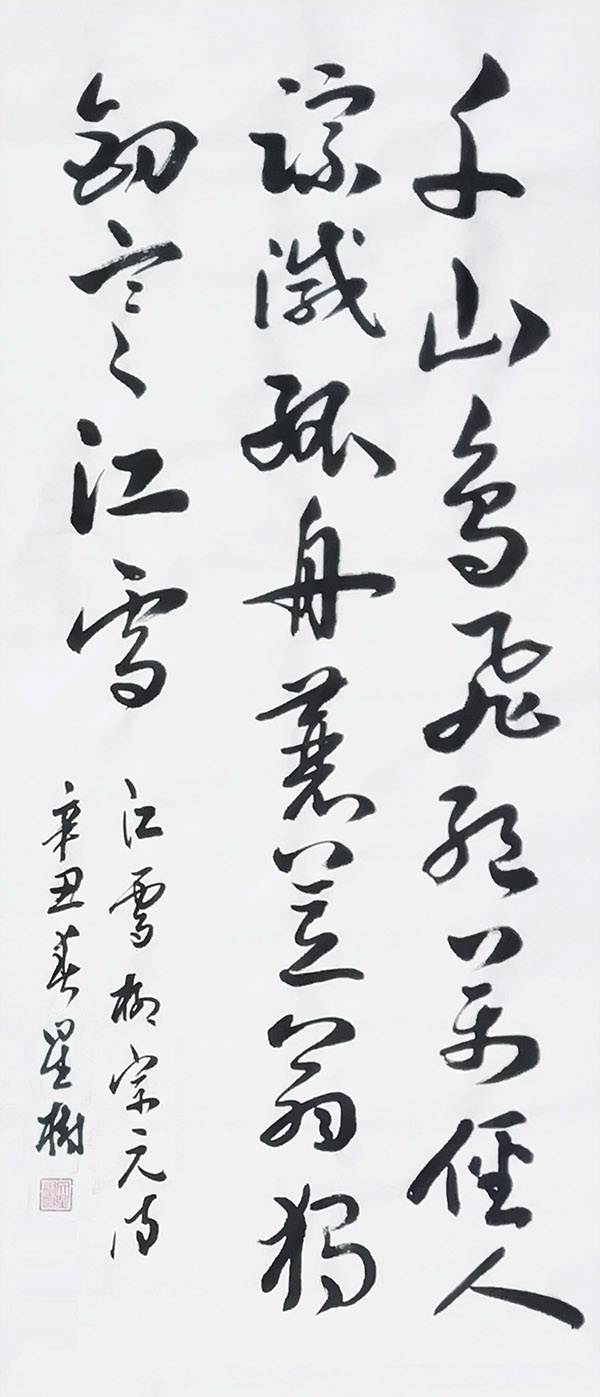 千山鳥飛絕萬徑人
踪滅孤舟蓑笠翁獨
釣寒江雪
江雪柳宗元詩
辛丑春星樹